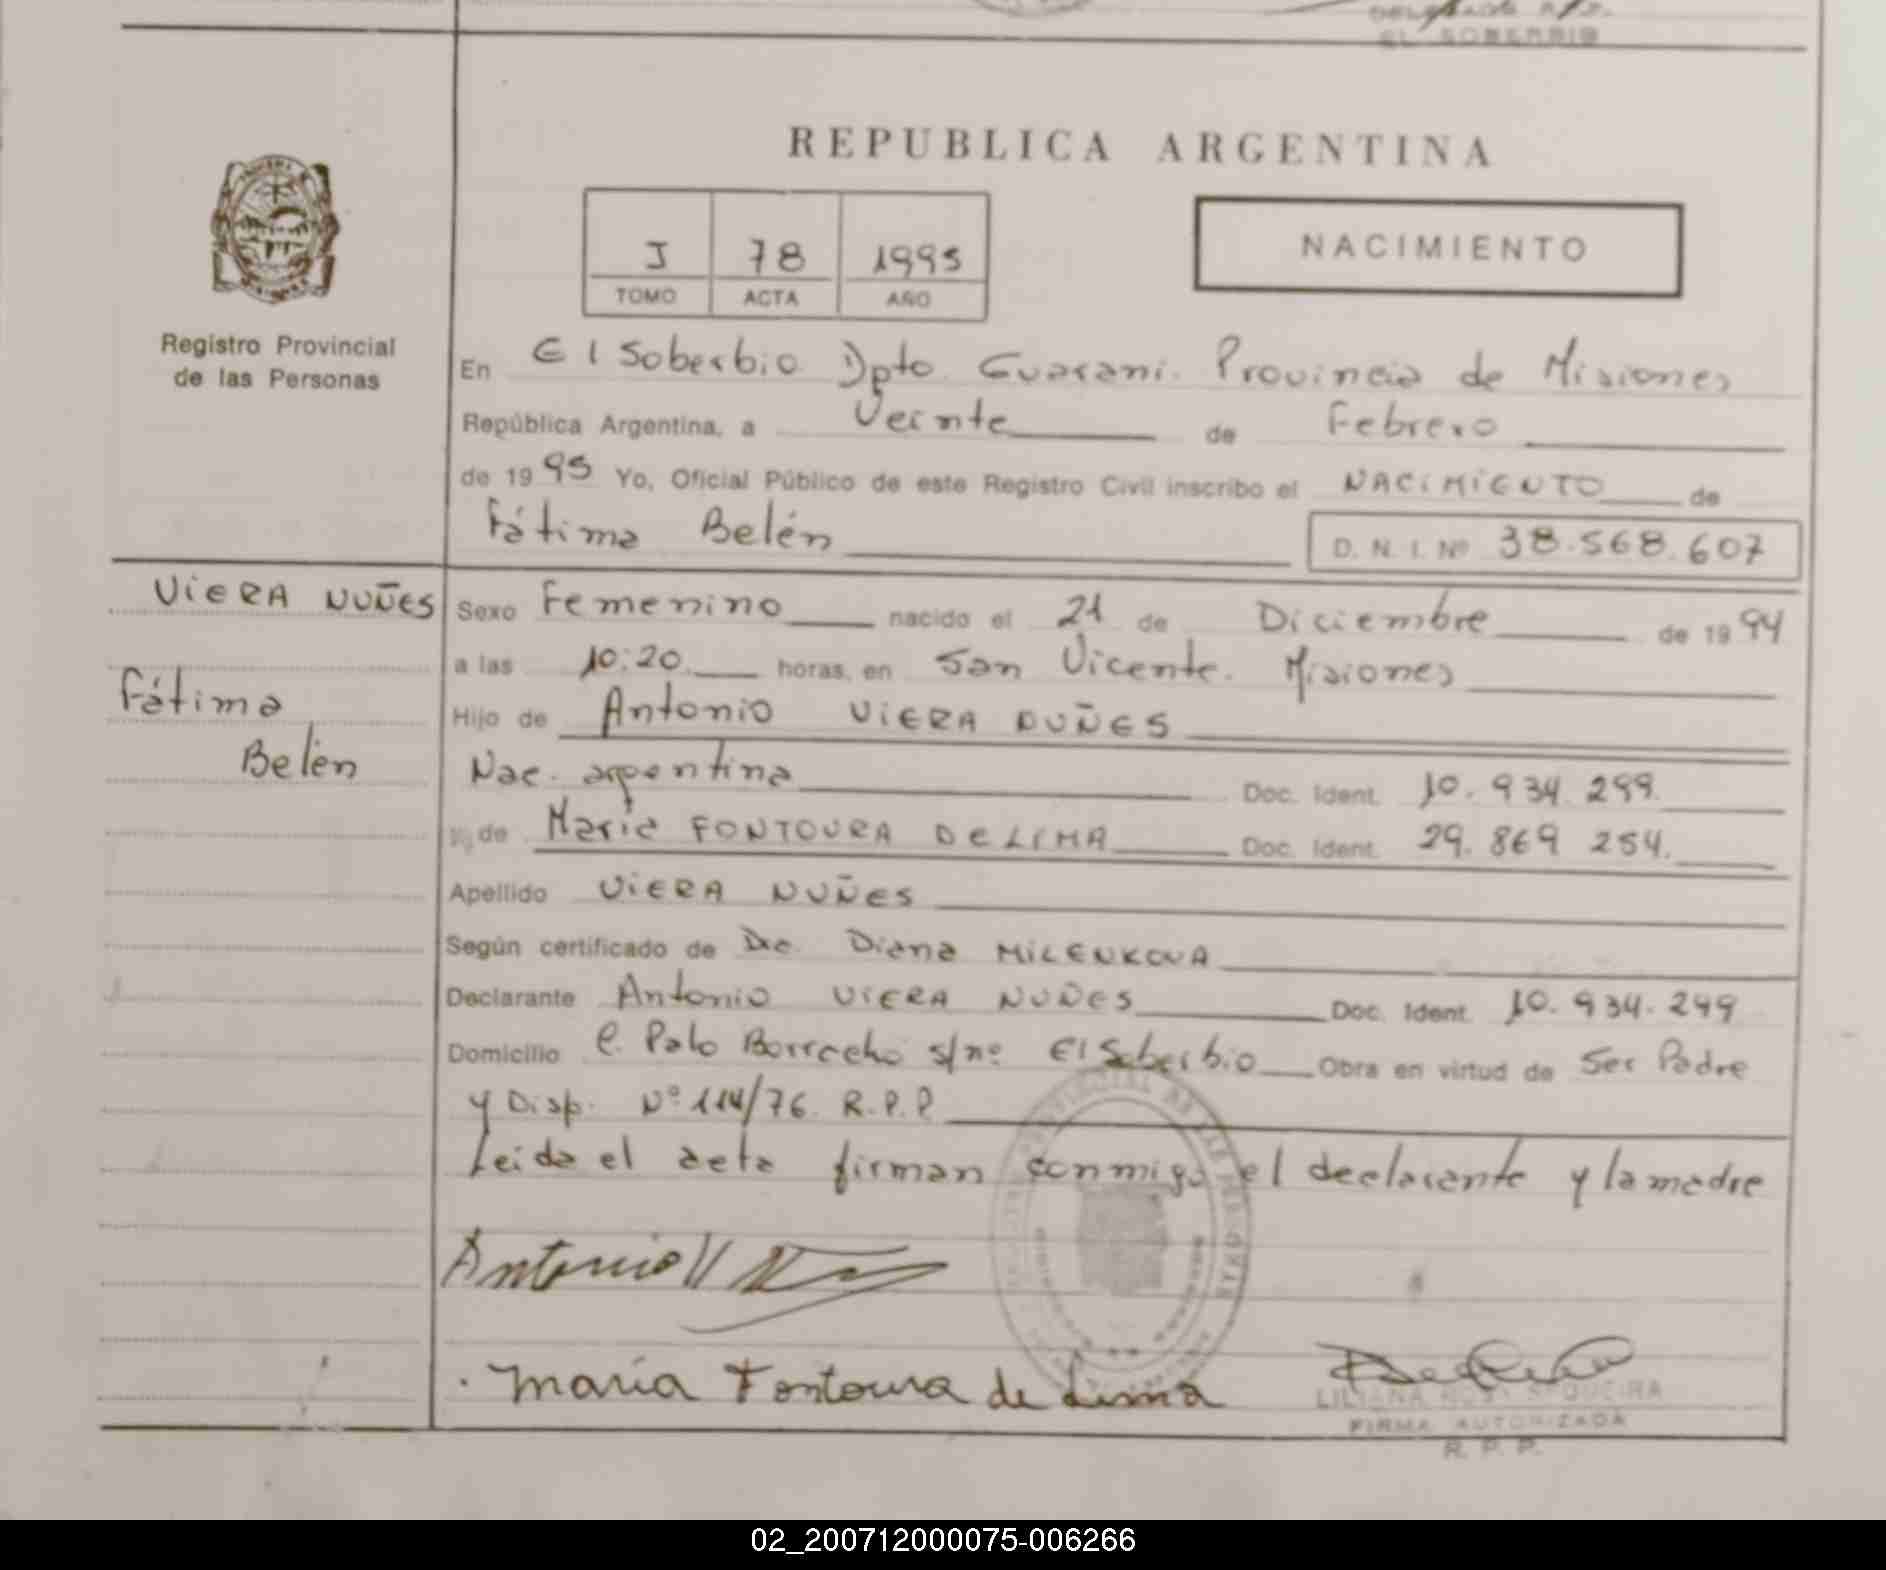 EL SOBERBIO
REPUBLICA ARGENTINA
I 78 1995
TOMO ACTA AÑO
NACIMIENTO
Registro Provincial
de las Personas
En El Soberbio Dpto Guarani. Provincia de Misiones
República Argentina, a Veinte de Febrero
de 1995 Yo, Oficial Público de este Registro Civil inscribo el NACIMIENTO de
Fátima Belén D. N. I. Nº 38.568.607
VIERA NUÑES
Fátima
Belén
Sexo Femenino nacido el 21 de Diciembre de 1994
a las 10:20. horas, en San Vicente. Misiones
Hijo de Antonio VIERA NUÑES
Nac. argentina Doc. Ident. 10.934.299.
y de María FONTOURA DE LIMA Doc. Ident. 29.869 254.
Apellido VIERA NUÑES
Según certificado de Dra. Diana MILENKOVA
Declarante Antonio VIERA NUÑES Doc. Ident. 10.934.299
Domicilio C. Palo Borracho s/nº El Soberbio Obra en virtud de Ser Padre
y Disp. Nº 114/76. R.P.P.
Leida el acta firman conmigo el declarante y la madre
Antonio V
María Fontoura de Lima
LILIANA ROSA SEQUEIRA
FIRMA AUTORIZADA
R. P. P.
02_200712000075-006266